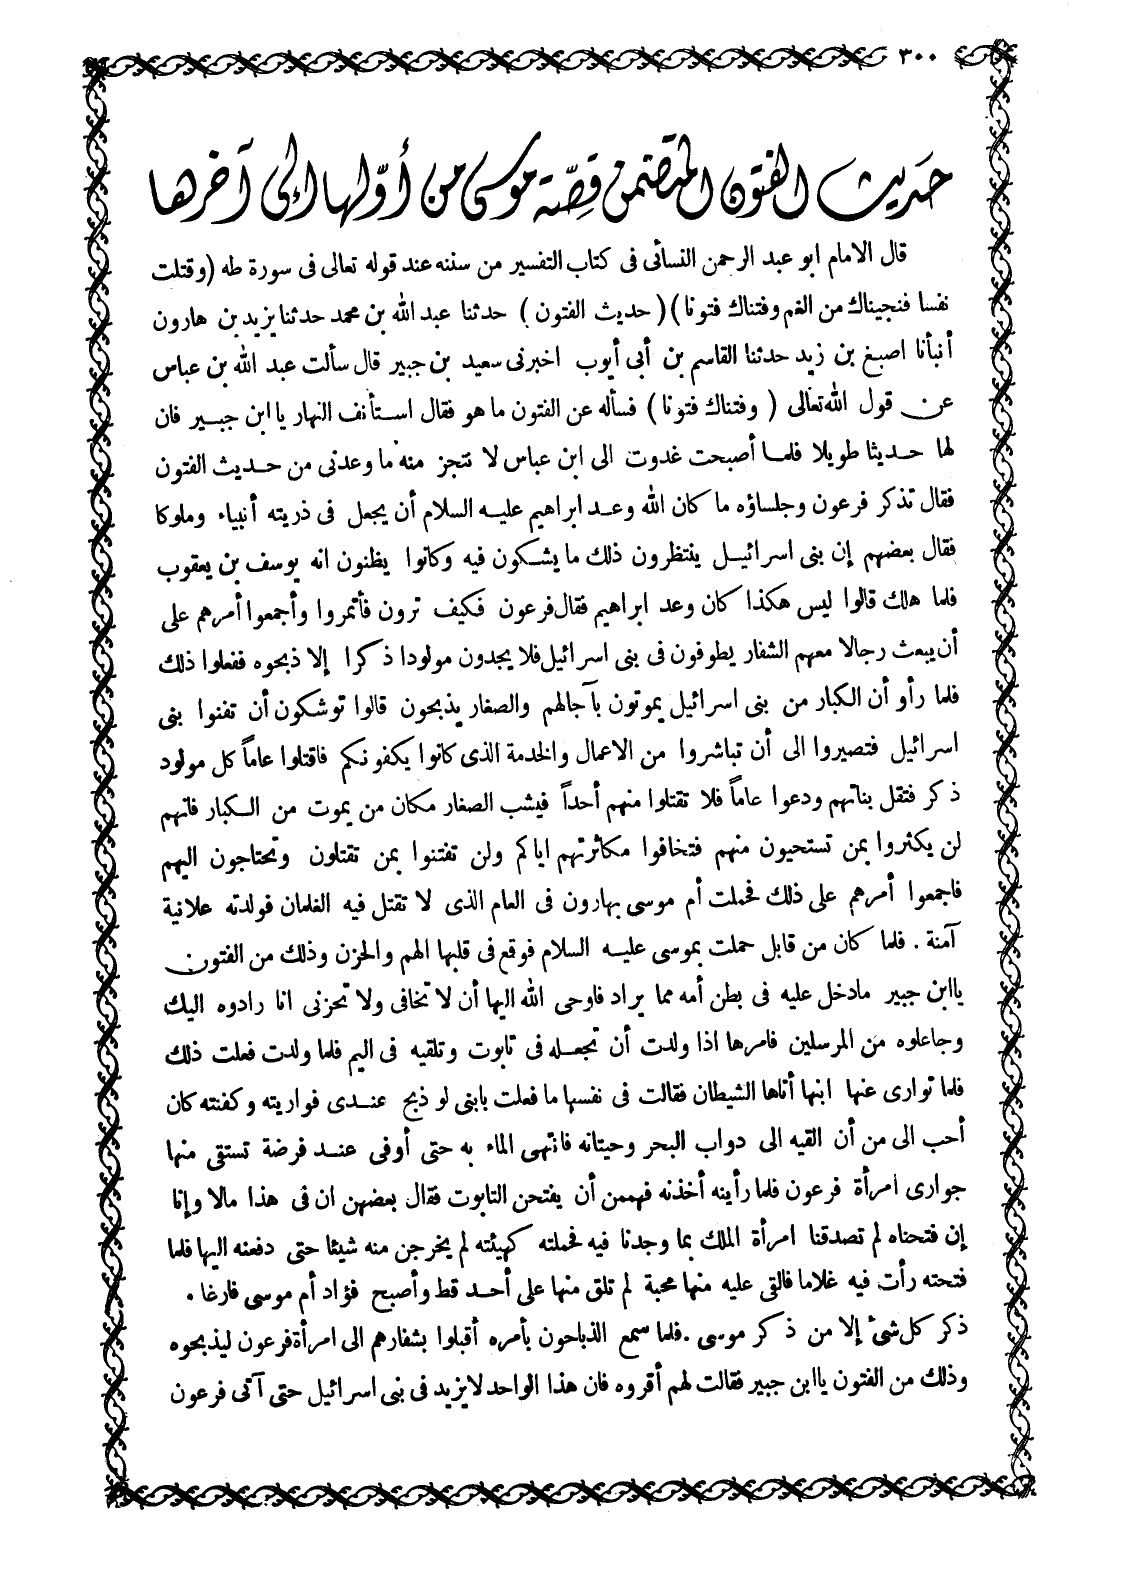 ٣٠٠
حديث الفتون المتضمن قصّة موسى من أوّلها إلى آخرها
قال الامام ابو عبد الرحمن النسائى فى كتاب التفسير من سننه عند قوله تعالى فى سورة طه (وقتلت
نفسا فنجيناك من الغم وفتناك فتونا)(حديث الفتون) حدثنا عبد الله بن محمد حدثنا يزيد بن هارون
أنبأنا اصبغ بن زيد حدثنا القاسم بن أبى أيوب اخبرنى سعيد بن جبير قال سألت عبد الله بن عباس
عن قول الله تعالى (وفتناك فتونا) فسأله عن الفتون ما هو فقال استأنف النهار يا ابن جبير فان
لها حديثا طويلا فلما أصبحت غدوت الى ابن عباس لا نتجز منه ما وعدنى من حديث الفتون
فقال تذكر فرعون وجلساؤه ما كان الله وعد ابراهيم عليه السلام أن يجعل فى ذريته أنبياء وملوكا
فقال بعضهم إن بنى اسرائيل ينتظرون ذلك ما يشكون فيه وكانوا يظنون انه يوسف بن يعقوب
فلما هلك قالوا ليس هكذا كان وعد ابراهيم فقال فرعون فكيف ترون فأتمروا وأجمعوا أمرهم على
أن يبعث رجالا معهم الشفار يطوفون فى بنى اسرائيل فلا يجدون مولودا ذكرا إلا ذبحوه ففعلوا ذلك
فلما رأو أن الكبار من بنى اسرائيل يموتون بآجالهم والصغار يذبحون قالوا توشكون أن تفنوا بنى
اسرائيل فتصيروا الى أن تباشروا من الاعمال والخدمة الذى كانوا يكفونكم فاقتلوا عاماً كل مولود
ذكر فتقل بناتهم ودعوا عاماً فلا تقتلوا منهم أحداً فيشب الصغار مكان من يموت من الكبار فانهم
لن يكثروا بمن تستحيون منهم فتخافوا مكاثرتهم اياكم ولن تفتنوا بمن تقتلون وتحتاجون اليهم
فاجمعوا أمرهم على ذلك فحملت أم موسى بهارون فى العام الذى لا تقتل فيه الغلمان فولدته علانية
آمنة . فلما كان من قابل حملت بموسى عليه السلام فوقع فى قلبها الهم والحزن وذلك من الفتون
يا ابن جبير مادخل عليه فى بطن أمه مما يراد فاوحى الله اليها أن لا تخافى ولا تحزنى انا رادوه اليك
وجاعلوه من المرسلين فامرها اذا ولدت أن تجعله فى تابوت وتلقيه فى اليم فلما ولدت فعلت ذلك
فلما توارى عنها ابنها أتاها الشيطان فقالت فى نفسها ما فعلت بابنى لو ذبح عندى فواريته وكفنته كان
أحب الى من أن القيه الى دواب البحر وحيتانه فانتهى الماء به حتى أوفى عند فرضة تستقى منها
جوارى امرأة فرعون فلما رأينه أخذنه فهممن أن يفتحن التابوت فقال بعضهن ان فى هذا مالا وإنا
إن فتحناه لم تصدقنا امرأة الملك بما وجدنا فيه فحملته كهيئته لم يخرجن منه شيئا حتى دفعنه اليها فلما
فتحته رأت فيه غلاما فالقى عليه منها محبة لم تلق منها على أحد قط وأصبح فؤاد أم موسى فارغا .
ذكر كل شئ إلا من ذكر موسى . فلما سمع الذباحون بأمره أقبلوا بشفارهم الى امرأة فرعون ليذبحوه
وذلك من الفتون يا ابن جبير فقالت لهم أقروه فان هذا الواحد لا يزيد فى بنى اسرائيل حتى آتى فرعون